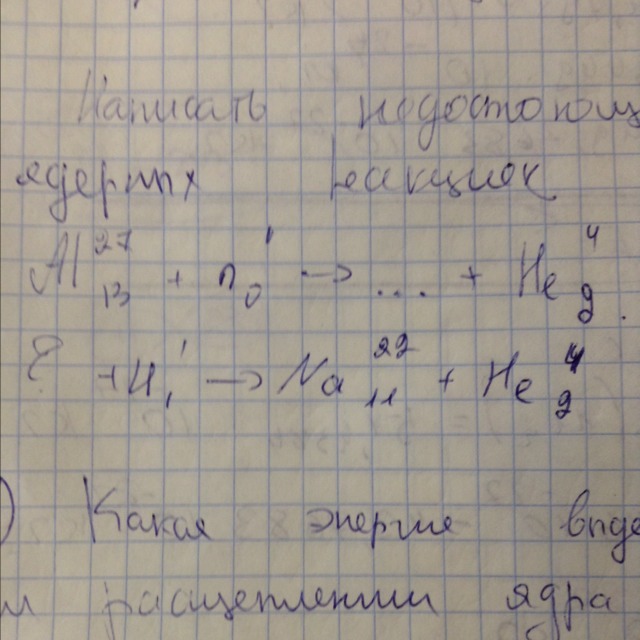 Написать недостающ
ядерных реакциях
Al 27 13 + n 1 0 → ... + He 4 2.
? + H 1 1 → Na 22 11 + He 4 2
) Какая энергия выде
расщеплении ядра